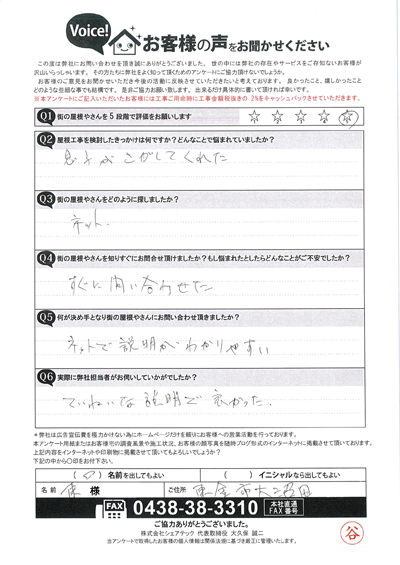 Voice!
お客様の声をお聞かせください
この度は弊社にお問い合わせを頂き誠にありがとうございました。世の中には弊社の存在やサービスをご存知ないお客様が
沢山いらっしゃいます。その方たちに弊社をよく知って頂くためのアンケートにご協力頂けないでしょうか。
お客様のご意見をお聞かせいただき今後の活動に反映させていただきたいと考えております。良かったこと、嬉しかったこと
どのような些細な事でも結構です。是非ご協力お願い致します。出来るだけ具体的に書いて頂ければ幸いです。
※本アンケートにご記入いただいたお客様には工事ご用命時に工事金額税抜きの 2%をキャッシュバックさせていただきます。
Q1 街の屋根やさんを5段階で評価をお願いします ☆ ☆ ☆ ☆ ☆
Q2 屋根工事を検討したきっかけは何ですか?どんなことで悩まれていましたか?
息子がさがしてくれた
Q3 街の屋根やさんをどのように探しましたか?
ネット.
Q4 街の屋根やさんを知りすぐにお問合せ頂けましたか?もし悩まれたとしたらどんなことがご不安でしたか?
すぐに問い合わせた
Q5 何が決め手となり街の屋根やさんにお問い合わせ頂きましたか?
ネットで説明がわかりやすい
Q6 実際に弊社担当者がお伺いしていかがでしたか?
ていねいな説明で良かった.
*弊社は広告宣伝費を極力かけない為にホームページだけを頼りにお客様への営業活動を行っております。
本アンケート用紙またはお客様宅の調査風景や施工状況、お客様の顔写真を随時ブログ形式のインターネットに掲載させて頂いております。
上記内容をインターネットや印刷物に掲載させて頂いてもよろしいでしょうか?
下記の中から〇印をお付下さい。
(○)名前を出してもよい ( )イニシャルなら出してもよい
名前 東 様 ご住所 東金市大沼田
FAX 0438-38-3310 本社直通 FAX番号
ご協力ありがとうございました。
株式会社シェアテック 代表取締役 大久保 誠二
当アンケートで取得したお客様の個人情報は関係法規に基づき厳正に管理いたします。
谷